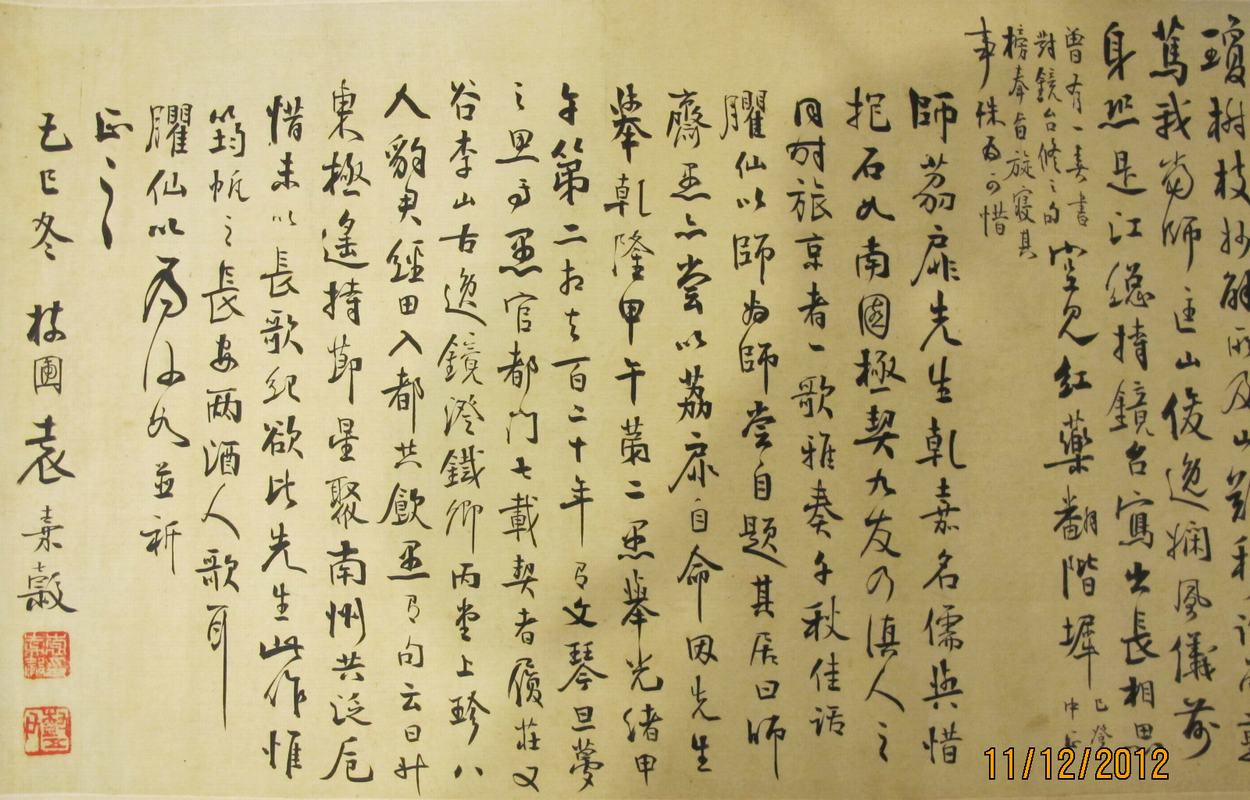 瓊樹枝抄
篤我當師主山後逸嫻風儀前
身照是江總持鏡台寫出長相思
曾有一春書
對鏡台修之句
榜奉旨旋寢其
事殊為可惜
空見紅藥翻階墀
師荔扉先生乾嘉名儒與惜
抱石如南園極契九友乃滇人之
同時旅京者一歌雅奏千秋佳話
臞仙以師為師嘗自題其居曰師
齋愚亦嘗以荔扉自命因先生
舉乾隆甲午第二愚舉光緒甲
午第二相去百二十年
之愚亦愚官都門七載契者履莊又
谷李山古逸鏡澄鐵卿丙堂上珍八
人豹君經田入都共飲愚句云曰
東極遙持節星聚南州共泛卮
惜未以長歌紀欲比先生此作惟
筠帆之長安兩酒人歌耳
臞仙以為何如並祈
正之
己巳冬 樹圃袁嘉穀
11/12/2012